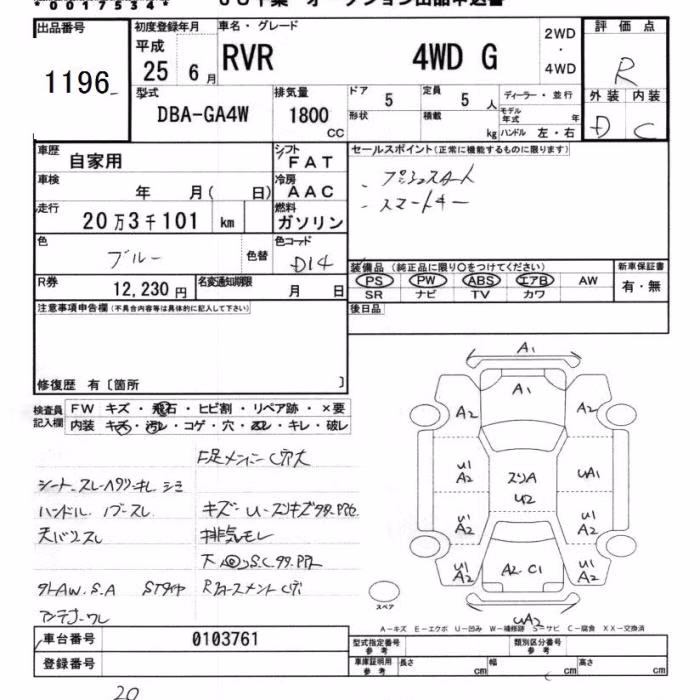 *00175334*
出品番号
1196
初度登録年月
平成
25 6月
車名・グレード
RVR 4WD G
2WD
・
4WD
評価点
R
外装 内装
D C
型式
DBA-GA4W
排気量
1800
CC
ドア
5
形状
定員
5 人
積載
kg
ディーラー・並行
モデル年式 年
ハンドル 左・右
車歴
自家用
シフト
FAT
セールスポイント(正常に機能するものに限ります)
- プッシュスタート
- スマートキー
車検
年 月( 日)
冷房
AAC
走行
20万3千101 km
燃料
ガソリン
色
ブルー
色替
色コード
D14
装備品(純正品に限り○をつけてください)
PS PW ABS エアB AW
SR ナビ TV カワ
新車保証書
有・無
R券
12,230円
名変通知期限
月 日
後日品
注意事項申告欄(不具合内容等は具体的に記入して下さい)
修復歴 有〔箇所 〕
検査員記入欄
FW キズ・飛石・ヒビ割・リペア跡・×要
内装 キズ・汚レ・コゲ・穴・スレ・キレ・破レ
シート スレ ヘタリ キレ シミ
ハンドル スレ
天バリスレ
外AW.S.A STタイヤ
キズ
排気モレ
下
A1
A1
A2
A2
U1
A2
スリA
U2
UA1
U1
A2
U1
A2
U1
A2
A2.C1
U1
A2
UA2
スペア
A-キズ E-エクボ U-凹み W-補修跡 S-サビ C-腐食 XX-交換済
車台番号
0103761
登録番号
型式指定番号
参考
類別区分番号
参考
車庫証明用
参考
長さ cm
幅 cm
高さ cm
20